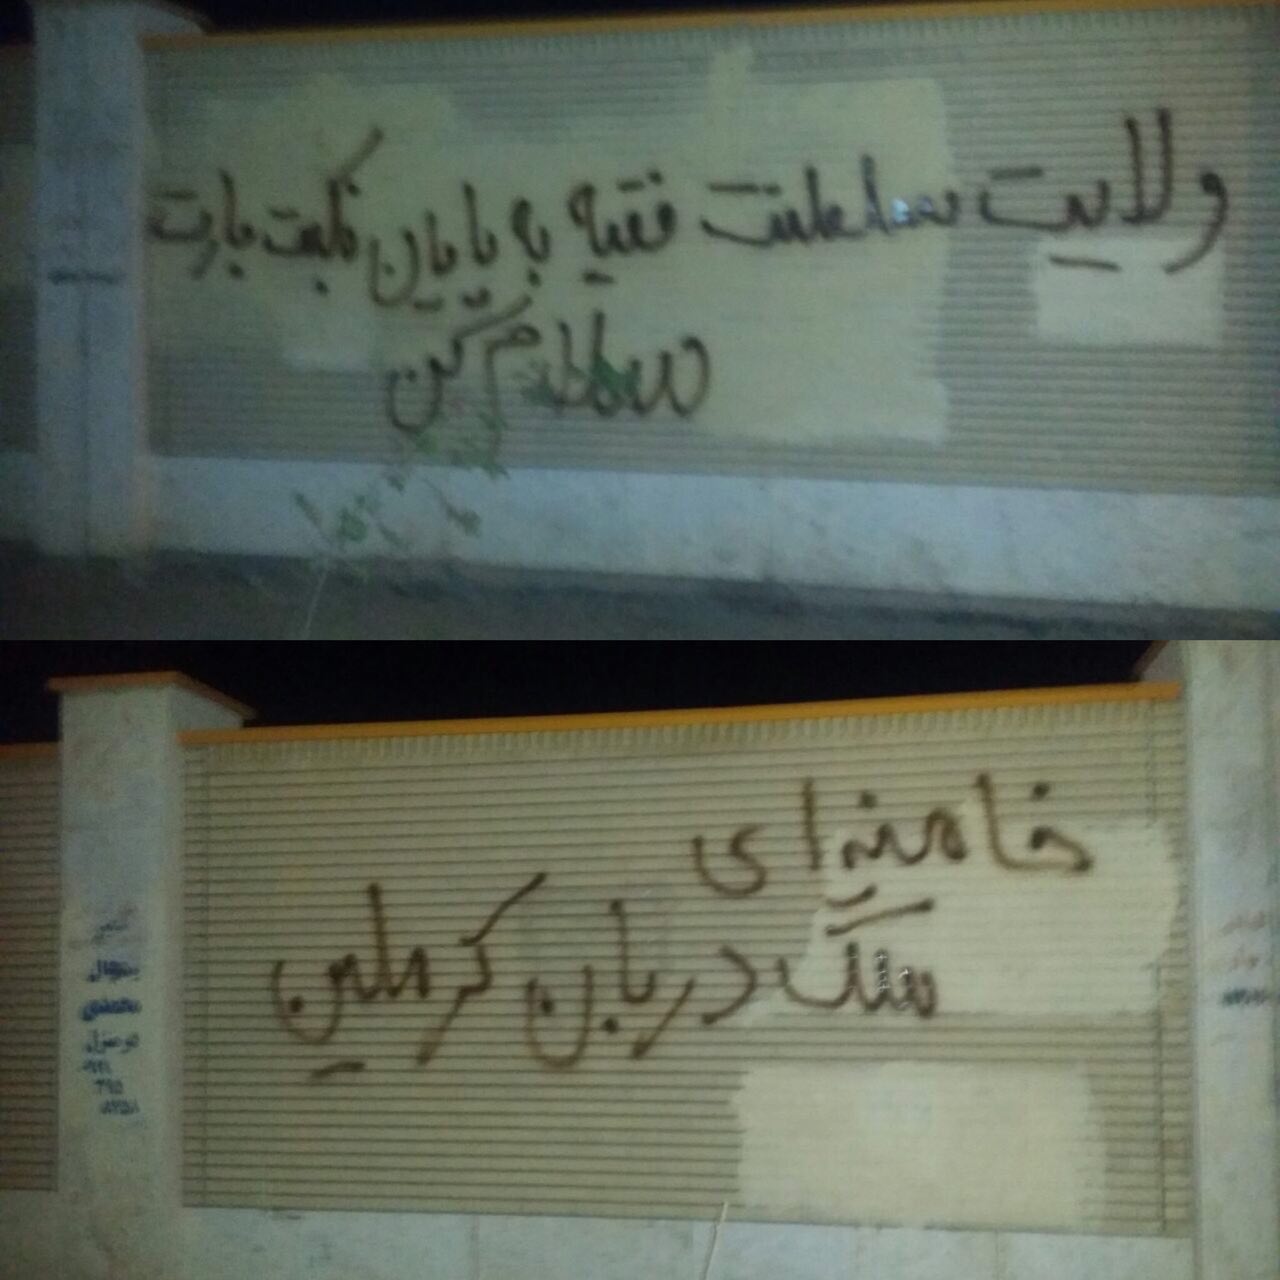 ولایت سلطنت فقیه به پایان نکبت بارت
سلام کن
خامنه ای
سگ دربان کرملین